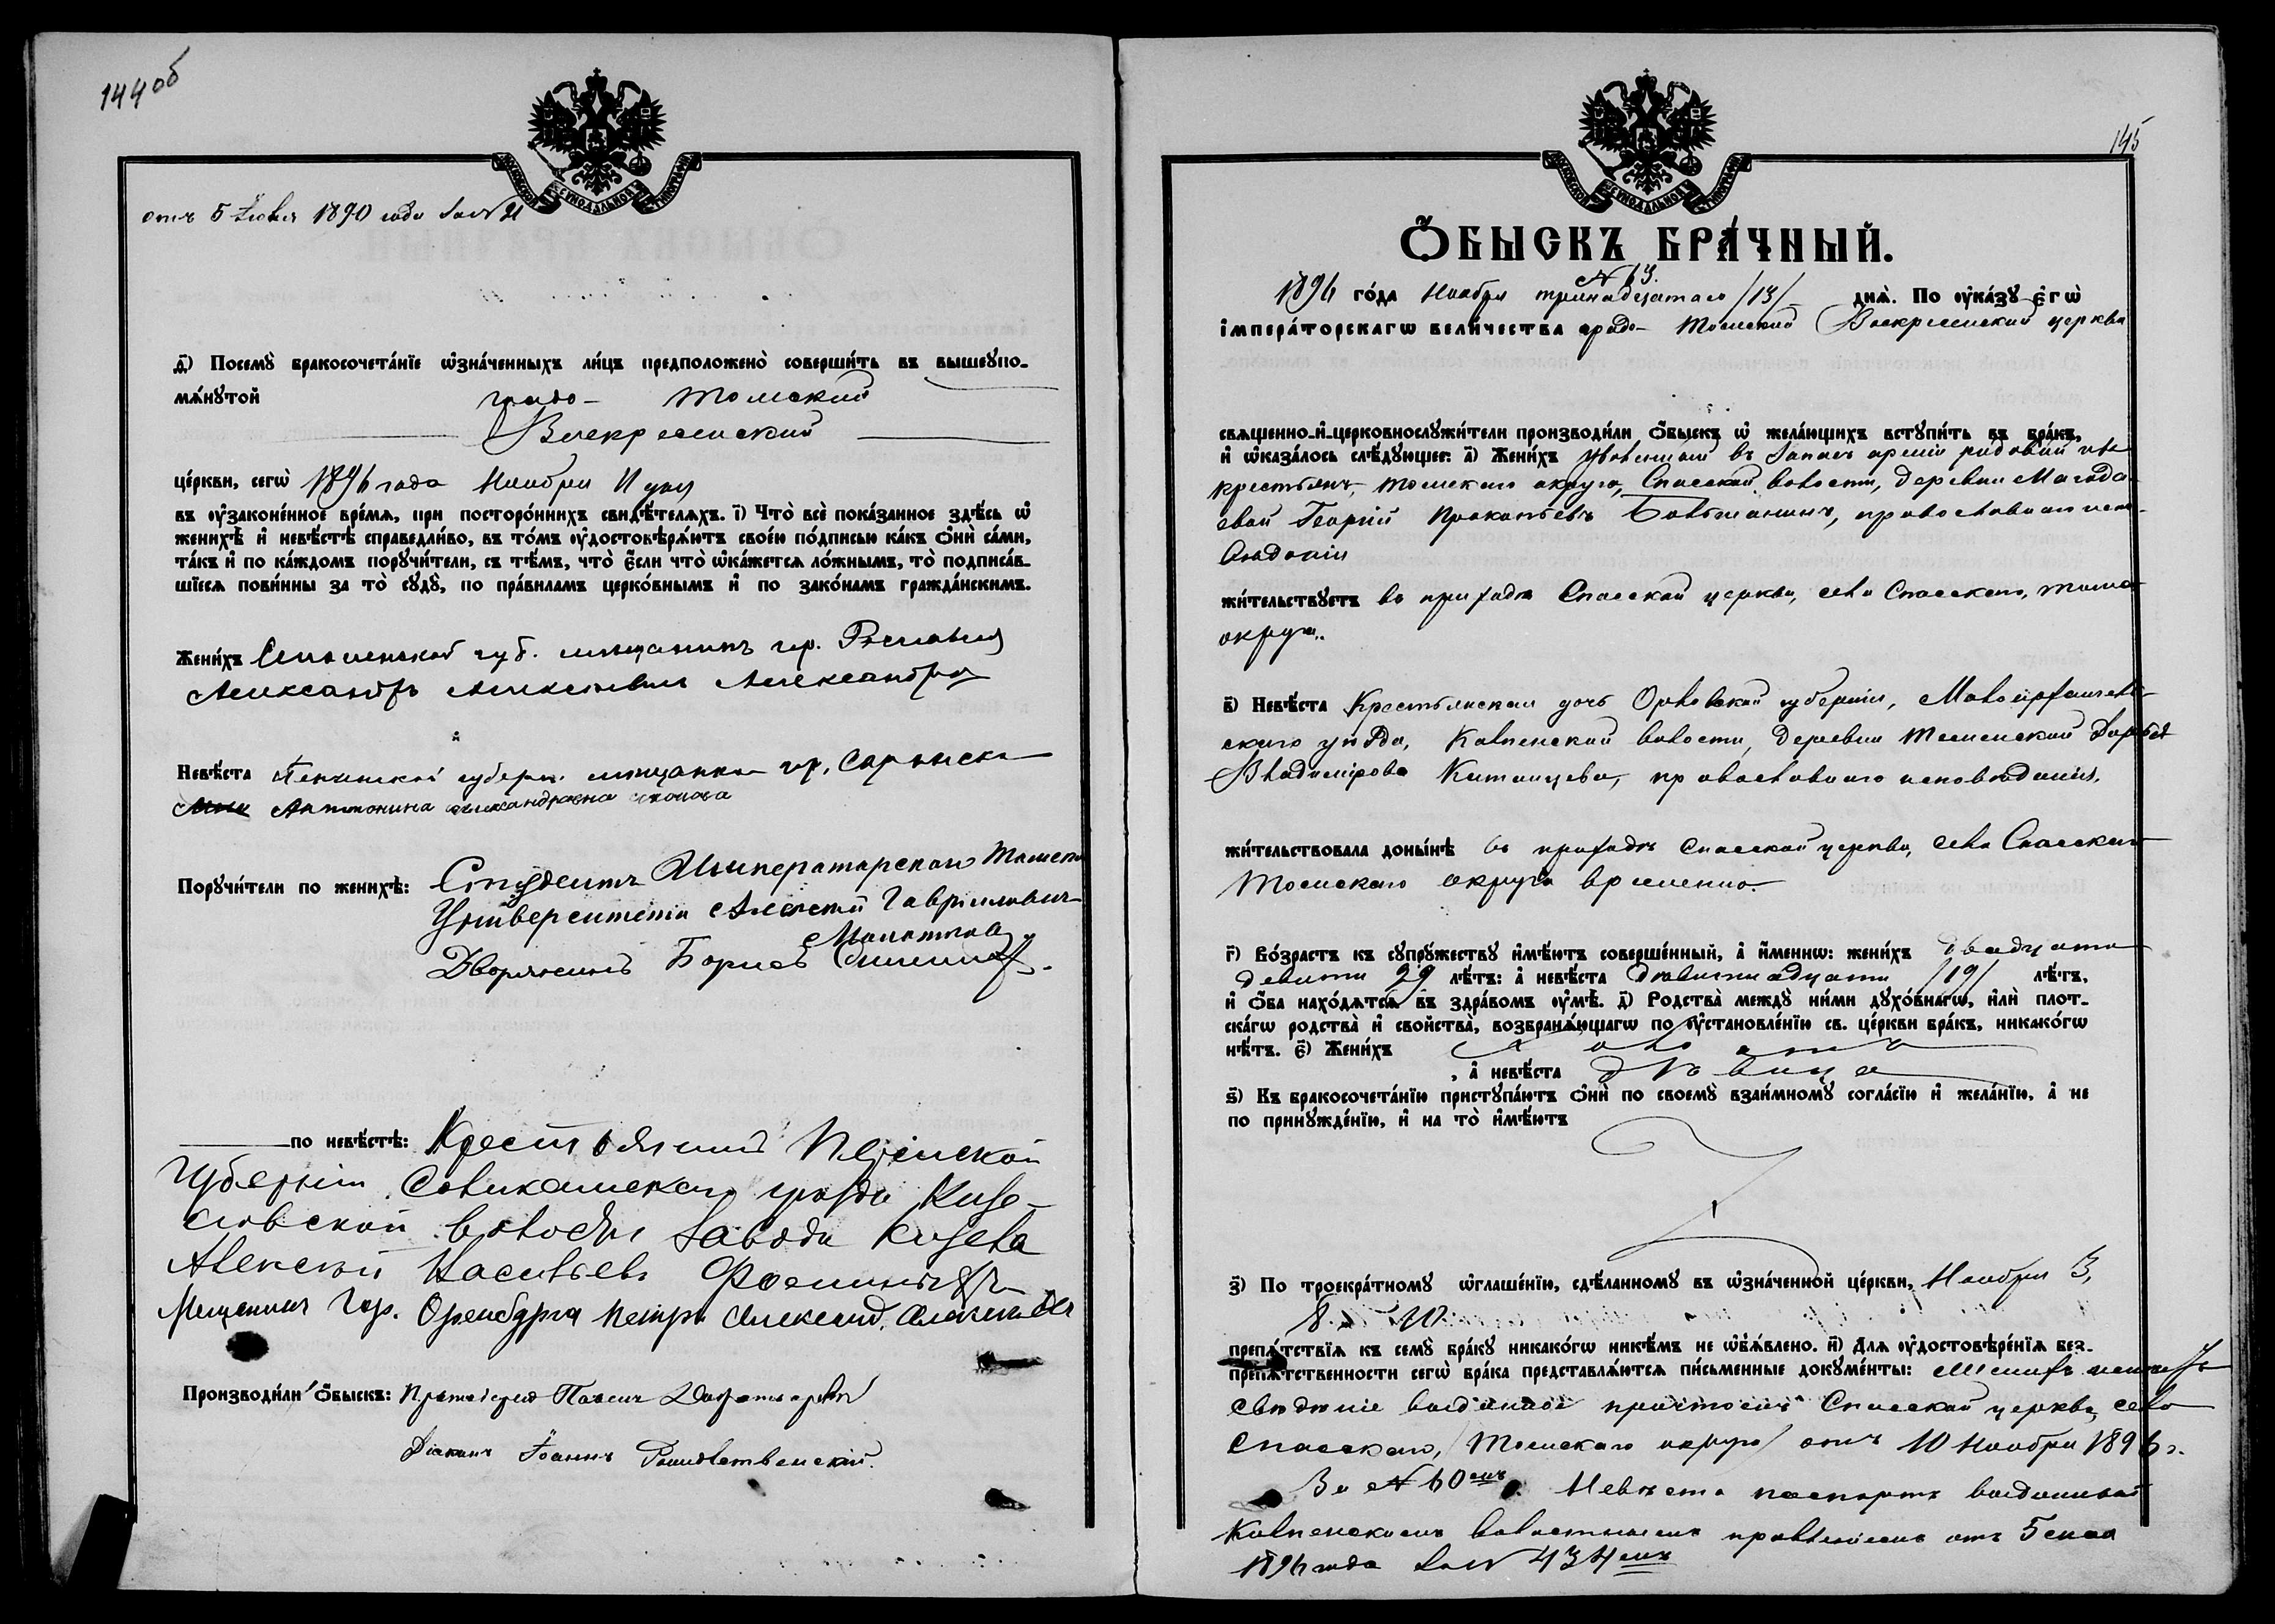 144об
отъ 5 Іюня 1890 года за № 21
д҃) Посемꙋ̀ бракосочета́нїе ѡ҆зна́ченныхъ ли́цъ предположено̀ соверши́ть въ вышеꙋпо-
мѧ́нꙋтой градо- Томской
Воскресенской
це́ркви, сегѡ̀ 1896 года Ноября 11 дня
въ ᲂу҆законе́нное вре́мѧ, при посторо́ннихъ свидѣ́телѧхъ. і҃) Что̀ всѐ пока́занное здѣ́сь ѡ҆
женихѣ̀ и҆ невѣ́стѣ справедли́во, въ то́мъ ᲂу҆достовѣрѧ́ютъ свое́ю по́дписью ка́къ ѻ҆нѝ са́ми,
та́къ и҆ по ка́ждомъ порꙋчи́тели, съ тѣ́мъ, что̀ є҆́сли что̀ ѡ҆ка́жетсѧ ло́жнымъ, то̀ подписа́в-
шїесѧ пови́нны за то̀ сꙋдꙋ̀, по пра́виламъ церко́внымъ и҆ по зако́намъ гражда́нскимъ.
Жени́хъ Смоленской губ. мѣщанинъ гр. Рославля
Александръ Алексѣевъ Александров
и
Невѣ́ста Пензенской губерн. мѣщанка гр. Саранска
Антонина Александровна
Порꙋчи́тели по женихѣ̀: Студентъ Императорскаго Томск
Университета Алексѣй Гавриловичъ
Дворянинъ Борисъ
по невѣ́стѣ: Крестьянинъ Пермской
Губерніи Соликамскаго уѣзда Кизе-
ловской волости завода Кизела
Алексѣй Васильевъ Фоминыхъ
Мѣщанинъ Гор. Оренбурга Петръ Александ.
Производи́ли ѻ҆́быскъ: Протоіерей
Діаконъ Іоаннъ Рождественскій.
145
МОСКОВСКОЙ СѴНОДАЛЬНОЙ ТИПОГРАФІИ
Ѻ҆́БЫСКЪ БРА́ЧНЫЙ.
№ 63.
1896 го́да Ноября тринадцатаго /13/ днѧ̀. По ᲂу҆ка́зꙋ є҆гѡ̀
і҆мпера́торскагѡ вели́чества градо- Томской Воскресенской церкви
свѧщенно-и҆-церковнослꙋжи́тели производи́ли ѻ҆́быскъ ѡ҆ жела́ющихъ встꙋпи́ть въ бра́къ,
и҆ ѡ҆каза́лось слѣ́дꙋющее: а҃) Жени́хъ уволенный въ запасъ арміи рядовой изъ
крестьянъ, Томскаго округа, Спасской волости, деревни Магада-
евой Георгій Прокопьевъ Болтанинъ, православнаго испо-
вѣданія
жи́тельствꙋетъ въ приходѣ Спасской церкви, села Спасскаго, Томск
округа.
в҃) Невѣ́ста Крестьянская дочь Орловской губерніи, Малоархангель-
скаго уѣзда, Колпенской волости, деревни Тесменской Дарья
Владимірова Китанцева, православнаго исповѣданія.
жи́тельствовала доны́нѣ въ приходѣ Спасской церкви, села Спасскаго
Томскаго округа временно.
г҃) Во́зрастъ къ сꙋпрꙋ́жествꙋ и҆мѣ́ютъ соверше́нный, а҆ и҆́меннѡ: жени́хъ двадцати
девяти 29 лѣ́тъ: а҆ невѣ́ста девятнадцати /19/ лѣ́тъ,
и҆ ѻ҆́ба нахо́дѧтсѧ въ здра́вомъ ᲂу҆мѣ̀. д҃) Родства̀ междꙋ̀ ни́ми дꙋхо́внагѡ, и҆лѝ плот-
ска́гѡ родства̀ и҆ свойства̀, возбранѧ́ющагѡ по ᲂу҆становле́нїю св. це́ркви бра́къ, никако́гѡ
нѣ́тъ. є҃) Жени́хъ холостъ
, а҆ невѣ́ста дѣвица
ѕ҃) Къ бракосочета́нїю пристꙋпа́ютъ ѻ҆нѝ по своемꙋ̀ взаи́мномꙋ согла́сїю и҆ жела́нїю, а҆ не
по принꙋжде́нїю, и҆ на то̀ и҆мѣ́ютъ
з҃) По троекра́тномꙋ ѡ҆глаше́нїю, сдѣ́ланномꙋ въ ѡ҆зна́ченной це́ркви, Ноября 3,
8 и 10
препѧ́тствїѧ къ семꙋ̀ бра́кꙋ никако́гѡ никѣ́мъ не ѡ҆б̾ѧ́влено. и҃) Длѧ ᲂу҆достовѣре́нїѧ без-
препѧ́тственности сегѡ̀ бра́ка представлѧ́ютсѧ пи́сьменные докꙋме́нты:
свѣдѣніе выданное причтомъ Спасской церкви, села
Спасскаго, /Томскаго округа/ отъ 10 Ноября 1896 г.
За № 60емъ. Невѣста паспортъ выданный
Колпенскимъ волостнымъ правленіемъ отъ 5 мая
1896 года за № 434емъ